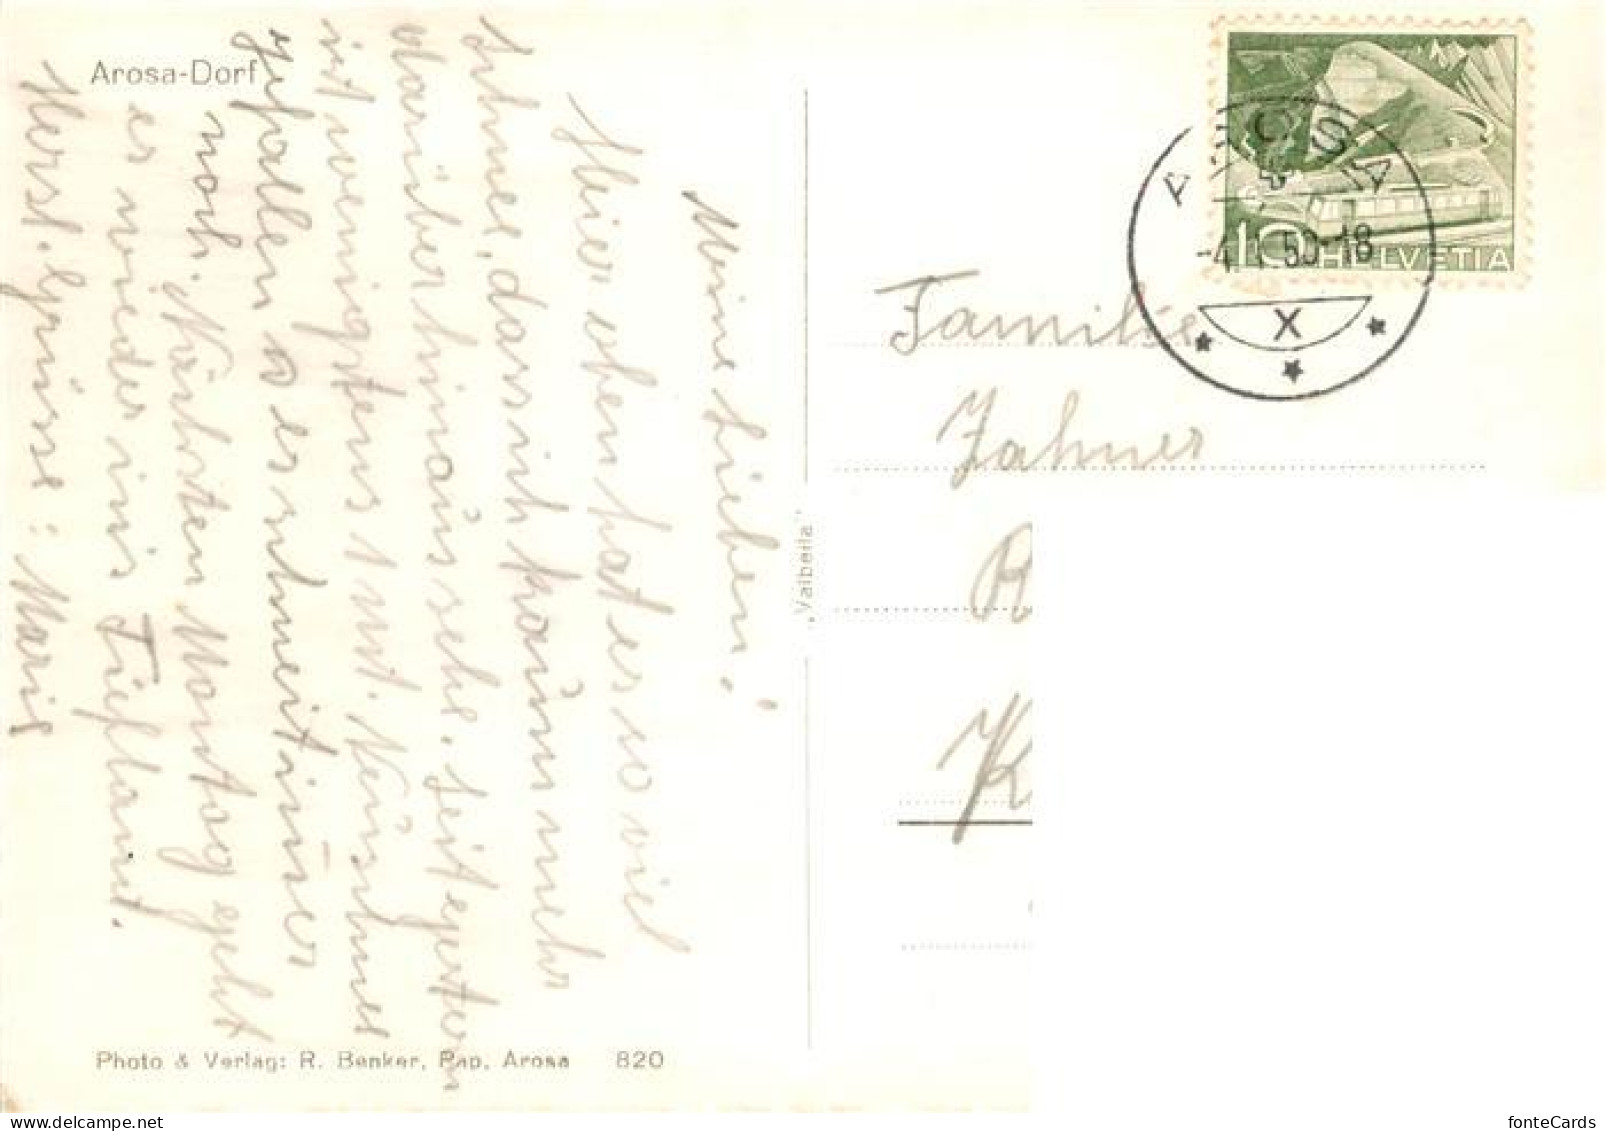 Arosa-Dorf
Meine Lieben!
Hier oben hat es so viel
Schnee, dass ich kaum mehr
darüber hinaus sehe. Seit gestern
ist wenigstens 1 mt. Neuschnee
gefallen u es schneit immer
noch. Nächsten Montag geht
es wieder ins Tiefland.
Herzl. Grüsse: Marie
Photo & Verlag: R. Benker, Pap. Arosa 820
„Valbella"
HELVETIA
10
AROSA
-4. 1. 50-18
X
Familie
Jahner
fonteCards